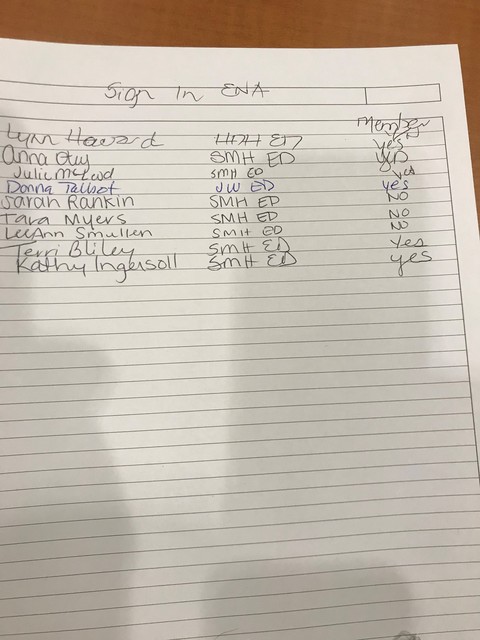 Sign In ENA
Member
Y/N
Lynn Howard HDH ED yes
Anna Guy SMH ED
Julie SMH ED yes
Donna Talbot JW ED yes
Sarah Rankin SMH ED NO
Tara Myers SMH ED NO
LeeAnn Smullen SMH ED NO
Terri Bliley SMH ED Yes
Kathy Ingersoll SMH ED yes